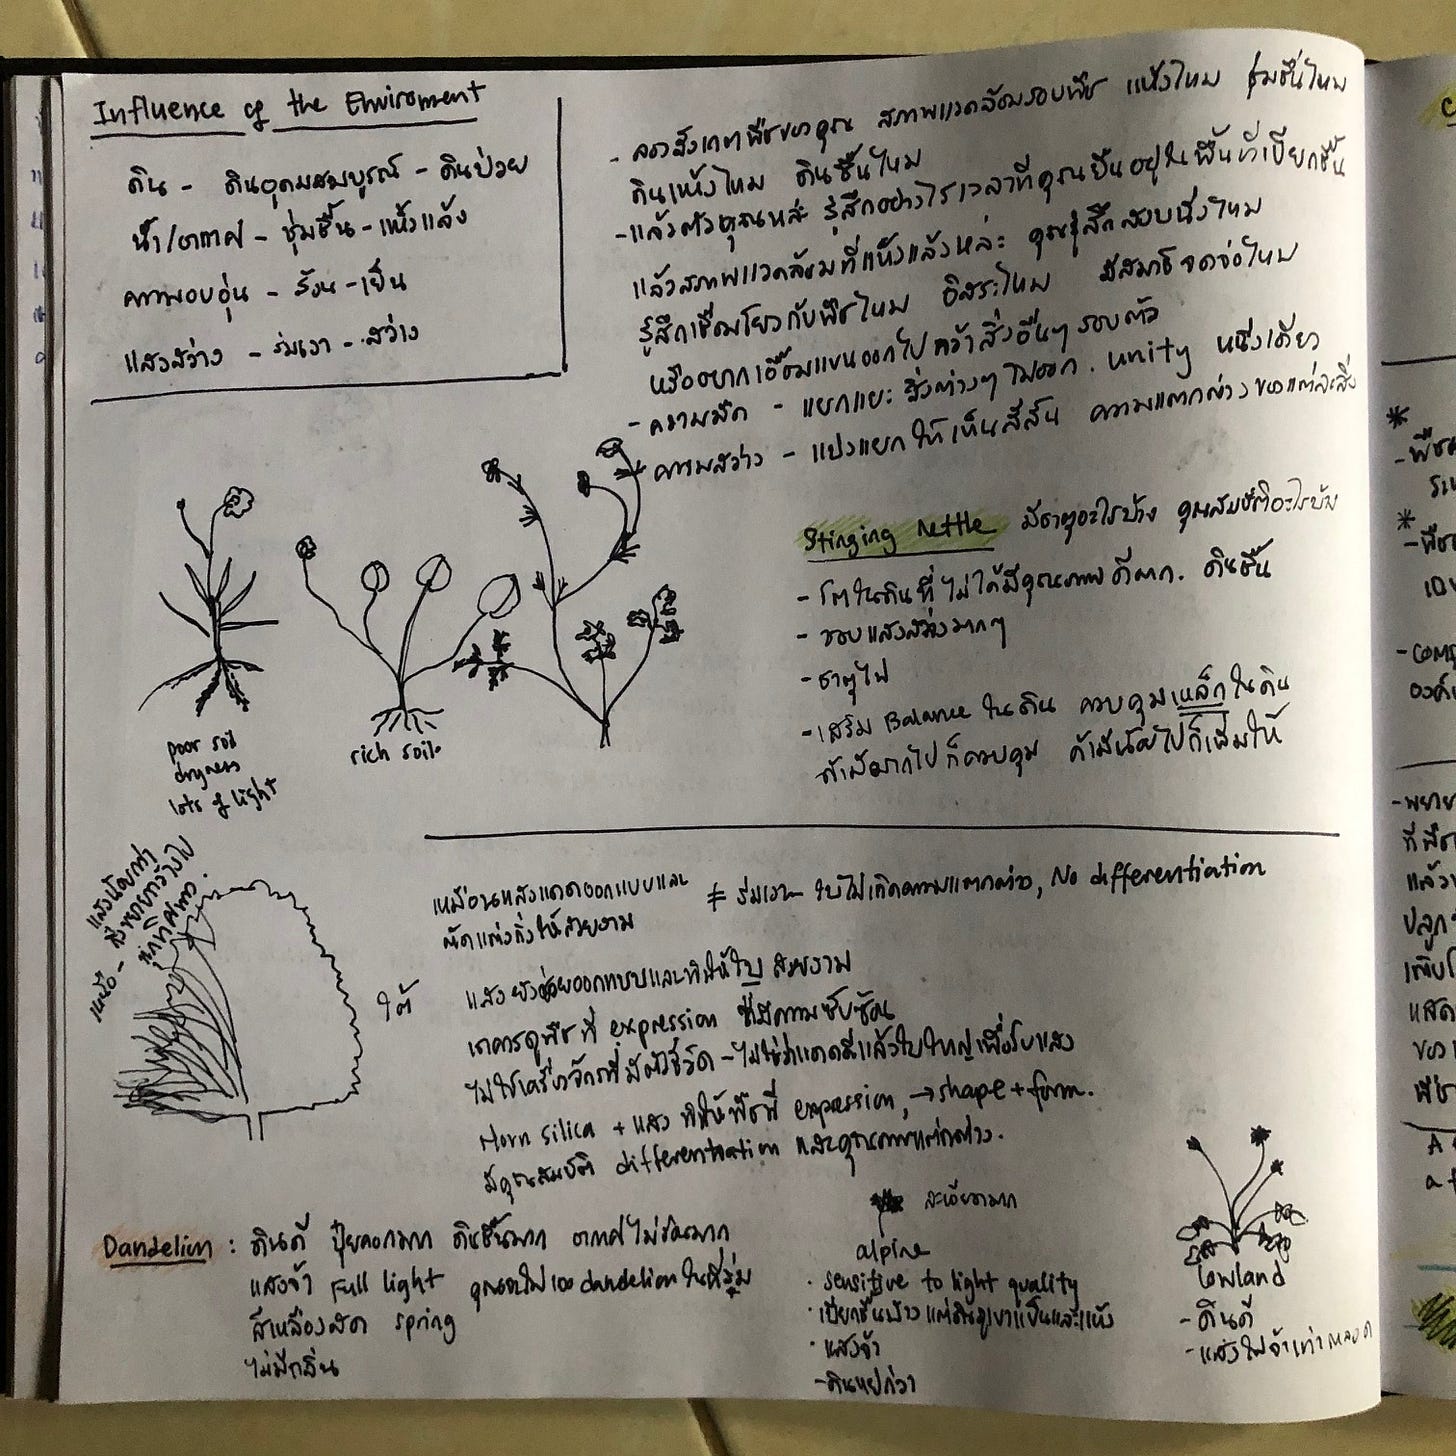 Influence of the Enviroment
ดิน - ดินอุดมสมบูรณ์ - ดินป่วย
น้ำ/อากาศ - ชุ่มชื้น - แห้งแล้ง
ความอบอุ่น - ร้อน - เย็น
แสงสว่าง - ร่มเงา - สว่าง
- ลองสังเกตพืชของคุณ สภาพแวดล้อมรอบพืช แห้งไหม ชุ่มชื้นไหม
ดินแห้งไหม ดินชื้นไหม
- แล้วตัวคุณหล่ะ รู้สึกอย่างไรเวลาที่คุณยืนอยู่ในพื้นที่เปียกชื้น
แล้วสภาพแวดล้อมที่แห้งแล้งหล่ะ คุณรู้สึกสงบนิ่งไหม
รู้สึกเชื่อมโยงกับพืชไหม อิสระไหม มีสมาธิจดจ่อไหม
หรืออยากเอื้อมแขนออกไปคว้าสิ่งอื่นๆ รอบตัว
- ความมืด - แยกแยะสิ่งต่างๆ ไม่ออก. unity หนึ่งเดียว
- ความสว่าง - แบ่งแยกให้เห็นสีสัน ความแตกต่างของแต่ละสิ่ง
poor soil
dryness
lots of light
rich soil
Stinging nettle มีธาตุอะไรบ้าง คุณสมบัติอะไรบ้าง
- โตในดินที่ไม่ได้มีคุณภาพดีมาก. ดินชื้น
- ชอบแสงสว่างมากๆ
- ธาตุไฟ
- เสริม Balance ในดิน ควบคุมเหล็กในดิน
ถ้ามีมากไปก็ควบคุม ถ้ามีน้อยไปก็เพิ่มให้
เหนือ - แสงน้อยกว่า
กิ่งพยายามกว้างไป
ทุกทิศทาง.
ใต้
เหมือนแสงแดดออกแบบและ
ตัดแต่งกิ่งให้สวยงาม
≠ ร่มเงา ใบไม่เกิดความแตกต่าง, No differentiation
แสงยังช่วยออกแบบและทำให้ใบ สวยงาม
เราควรดูพืชที่ expression ที่มีความซับซ้อน
ไม่ใช่เครื่องจักรที่มีตัวชี้วัด - ไม่ใช่ว่าแดดดีแล้วใบใหญ่เพื่อรับแสง
Horn silica + แสง ทำให้พืชที่ expression, → shape + form.
มีคุณสมบัติ differentiation และคุณภาพแตกต่าง.
Dandelion : ดินดี ปุ๋ยคอกมาก ดินชื้นมาก อากาศไม่ร้อนมาก
แสงจ้า Full light dandelion ในที่ร่ม
สีเหลืองสด spring
ไม่มีกลิ่น
ละเอียดมาก
alpine
· sensitive to light quality
· เปียกชื้นบ้าง แต่ดินภูเขาเย็นและแห้ง
· แสงจ้า
- ดินแย่กว่า
lowland
- ดินดี